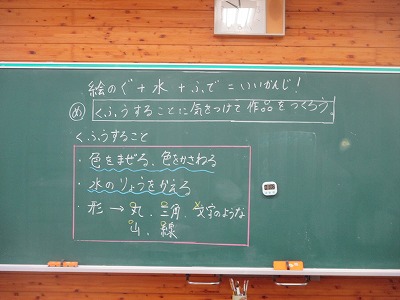 絵のぐ+水+ふで=いいかんじ!
め くふうすることに気をつけて作品をつくろう。
くふうすること
・色をまぜる、色をかさねる
・水のりょうをかえる
・形→丸、三角、文字のような
山、線